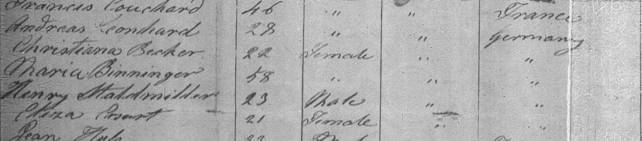 Francis Couchard 46 " " France
Andreas Leonhard 28 " " Germany
Christiana Becker 22 Female " "
Maria Binninger 58 " " "
Henry Stahdmilder 23 Male " "
Eliza 21 Female " "
Jean